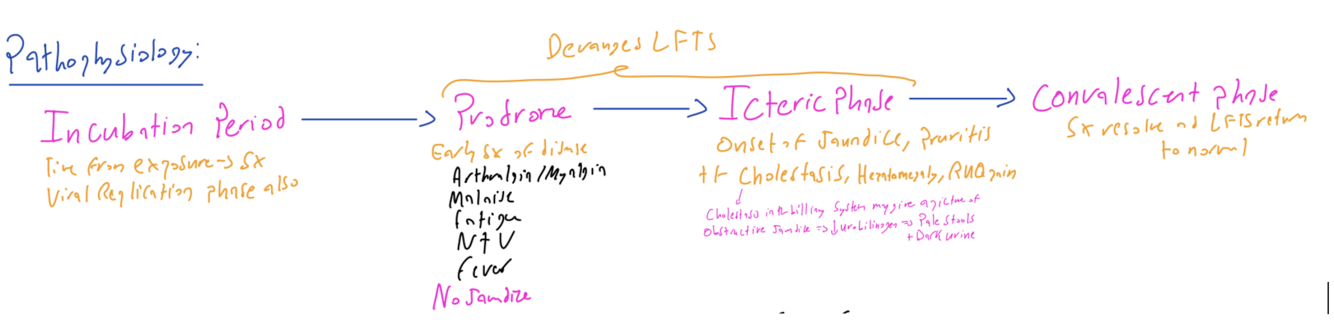 Pathophysiology:
Deranges LFTS
Incubation Period
Time from exposure → Sx
Viral Replication phase also
Prodrome
Early Sx of disease
Arthralgia/Myalgia
Malaise
Fatigue
N+V
Fever
No Jaundice
Icteric Phase
Onset of Jaundice, Pruritis
+/- Cholestasis, Hepatomegaly, RUQ pain
Cholestasis in the billiary System may give a picture of
Obstructive Jaundice => ↓ urobilinogen => Pale stools
+ Dark urine
Convalescent phase
Sx resolve and LFTS return
to normal